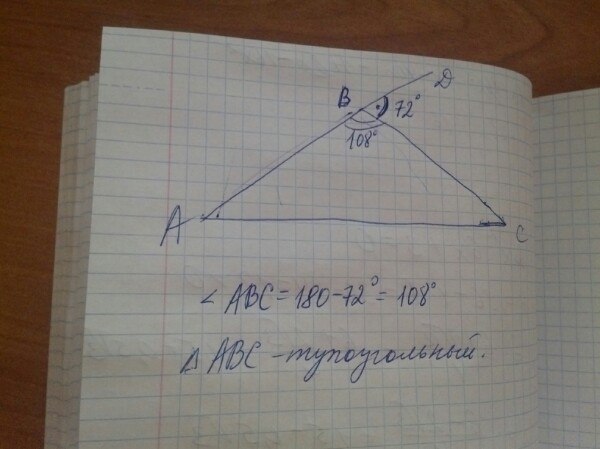 D
B
72°
108°
A
C
∠ ABC = 180 - 72° = 108°
Δ ABC - тупоугольный.